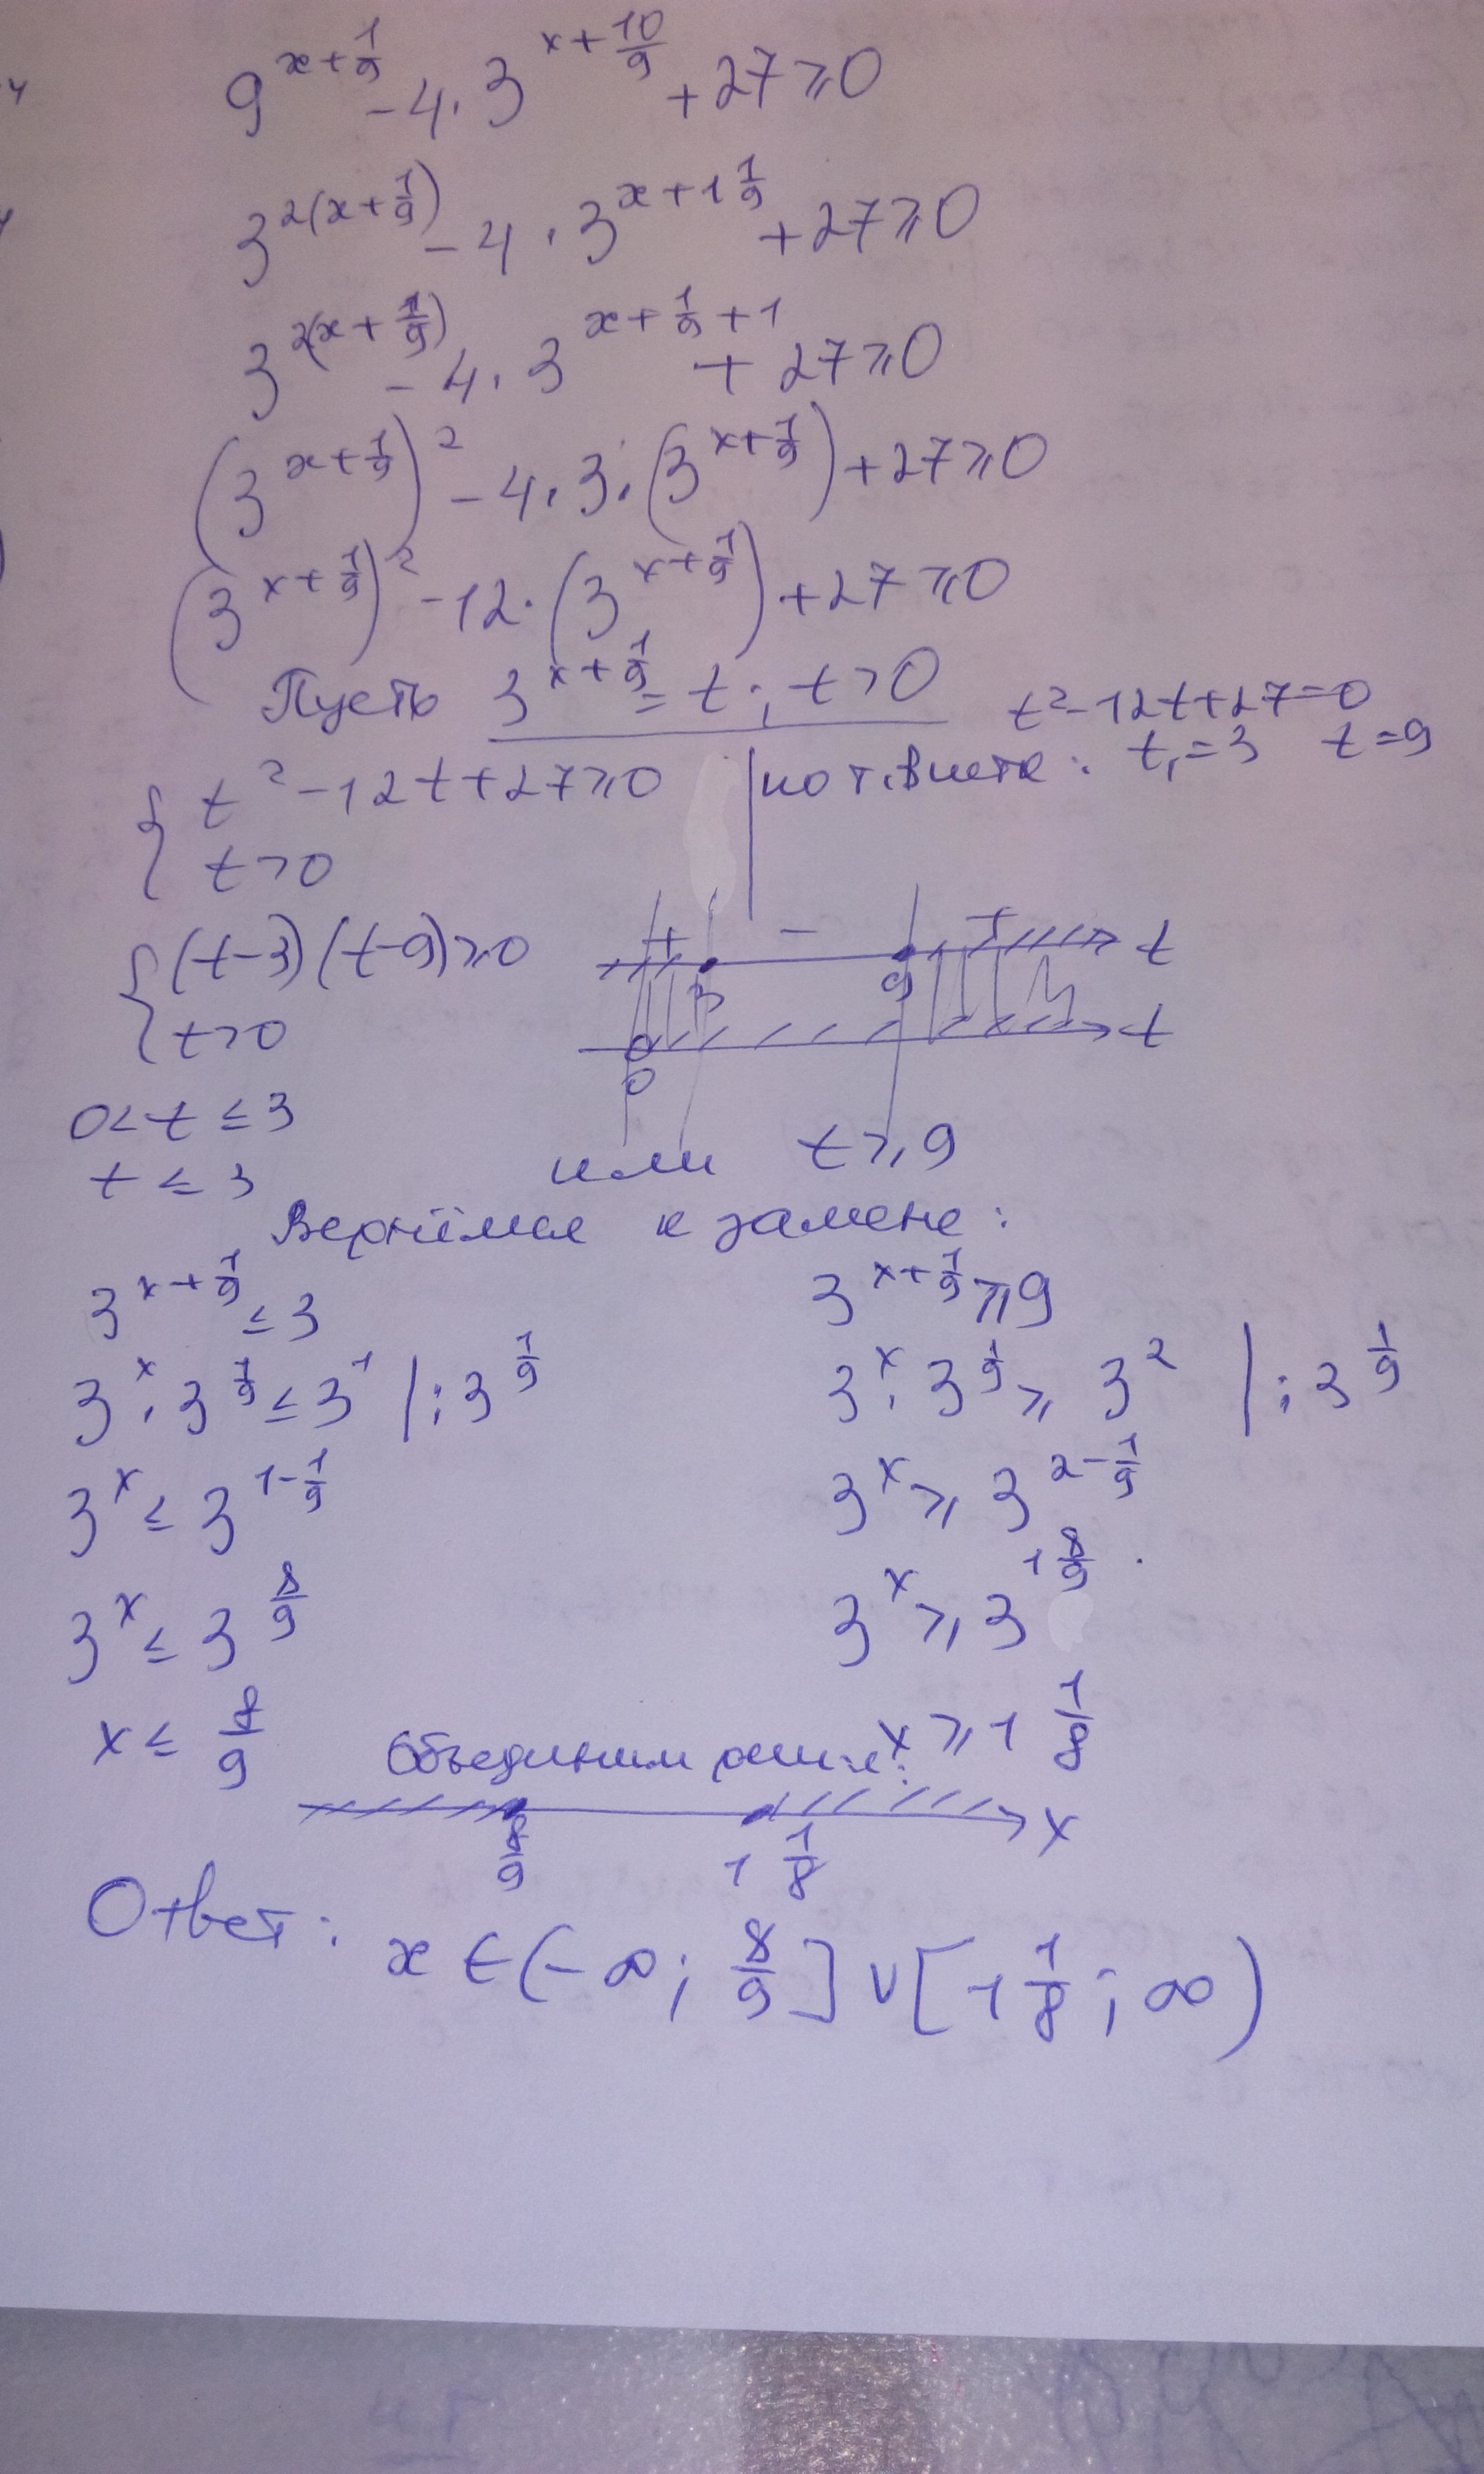 9^{x+\frac{1}{9}} - 4 \cdot 3^{x+\frac{10}{9}} + 27 ⩾ 0
3^{2(x+\frac{1}{9})} - 4 \cdot 3^{x+1\frac{1}{9}} + 27 ⩾ 0
3^{2(x+\frac{1}{9})} - 4 \cdot 3^{x+\frac{1}{9}+1} + 27 ⩾ 0
(3^{x+\frac{1}{9}})^2 - 4 \cdot 3 \cdot (3^{x+\frac{1}{9}}) + 27 ⩾ 0
(3^{x+\frac{1}{9}})^2 - 12 \cdot (3^{x+\frac{1}{9}}) + 27 ⩾ 0
Пусть 3^{x+\frac{1}{9}} = t; t > 0
t² - 12t + 27 = 0
{ t² - 12t + 27 ⩾ 0
t > 0
по т. Виета: t₁ = 3 t = 9
{ (t-3)(t-9) ⩾ 0
t > 0
+ - +
3 9 t
0 t
0 < t ≤ 3
t ≤ 3 или t ⩾ 9
Вернёмся к замене:
3^{x+\frac{1}{9}} ≤ 3 3^{x+\frac{1}{9}} ⩾ 9
3^x \cdot 3^{\frac{1}{9}} ≤ 3^1 | : 3^{\frac{1}{9}} 3^x \cdot 3^{\frac{1}{9}} ⩾ 3^2 | : 3^{\frac{1}{9}}
3^x ≤ 3^{1-\frac{1}{9}} 3^x ⩾ 3^{2-\frac{1}{9}}
3^x ≤ 3^{\frac{8}{9}} 3^x ⩾ 3^{1\frac{8}{9}}
x ≤ \frac{8}{9} x ⩾ 1\frac{1}{8}
Объединим
\frac{8}{9} 1\frac{1}{8} x
Ответ: x ∈ (-∞; \frac{8}{9}] ∪ [1\frac{1}{8}; ∞)